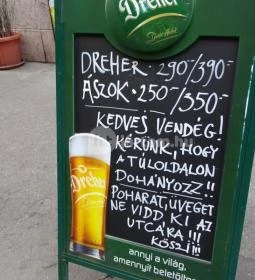 Dreher
DREHER • 290/390-
ÁSZOK • 250/350-
KEDVES VENDÉG!
KÉRÜNK, HOGY
A TÚLOLDALON
DOHÁNYOZZ!!
POHARAT, ÜVEGET
NE VIDD KI AZ
UTCÁRA!!!
KÖSZI!!!
Dreher
annyi a világ,
amennyit beletöltesz